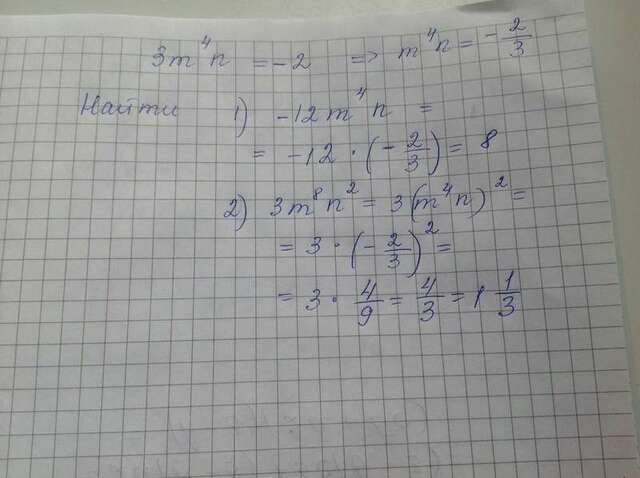 3m⁴n = -2 => m⁴n = -2/3
Найти 1) -12m⁴n =
= -12 · (-2/3) = 8
2) 3m⁸n² = 3(m⁴n)² =
= 3 · (-2/3)² =
= 3 · 4/9 = 4/3 = 1 1/3